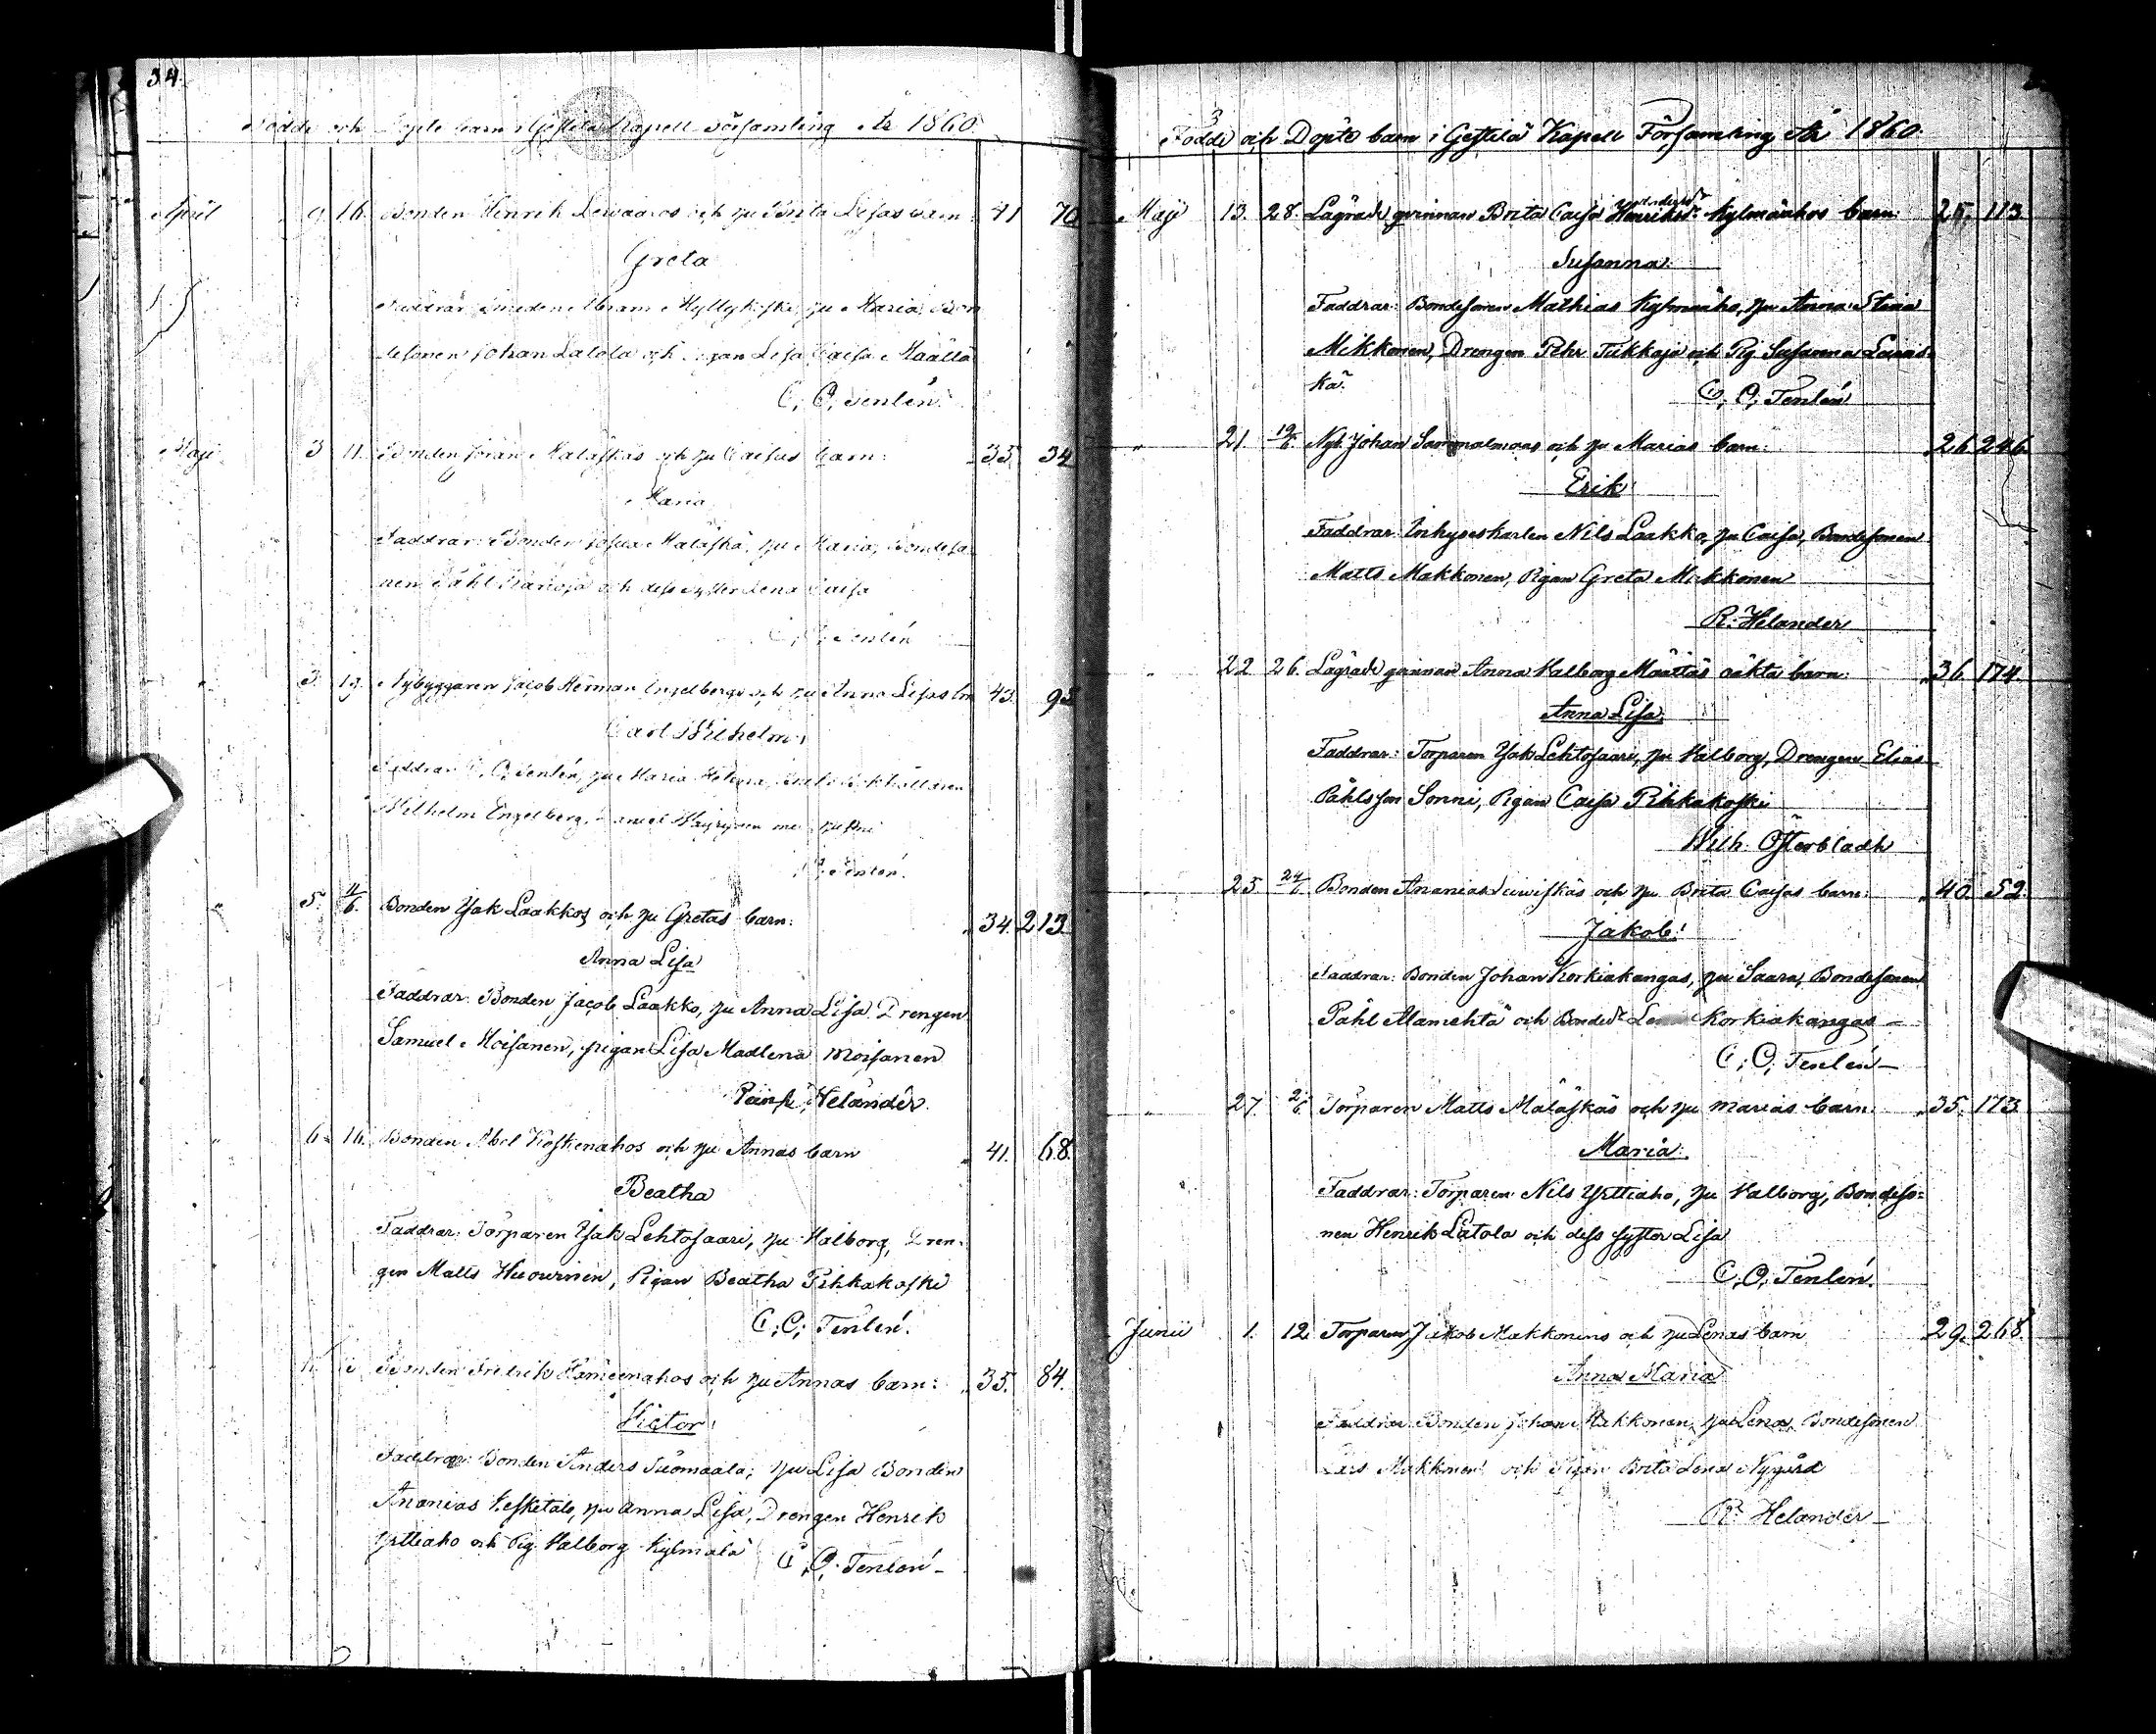 34.
Födde och Döpte barn i Gestilä Kapell Församling År 1860.
April 9. 16. Bonden Henrik Lewaaros och hu Brita Lisas barn 41 70
Greta
Faddrar Smeden Abram Myllykoski, hu Maria, Bon
desonen Johan Latola och Pigan Lisa Caisa Määttä
C. O. Tenlén.
Maji 3 11. Bonden Göran Mäläskäs och hu Caisas barn: 33. 34
Maria
Faddrar: Bonden Josua Mäläskä, hu Maria, Bondeso
nen Påhl Karioja och dess syster Lena Caisa
C. O. Tenlén
" 3. 19. Nybyggaren Jacob Herman Engelbergs och hu Anna Lisas bn 43. 92
Carl Wilhelm
Faddrar C. O. Tenlén, hu Maria Helena,
Wilhelm Engelberg, Daniel Wäyrynen med hustru
C. O. Tenlén.
" 5. 11/6. Bonden Isak Laakkos och hu Gretas barn: 34. 213.
Anna Lisa
Faddrar: Bonden Jacob Laakko, hu Anna Lisa Drengen
Samuel Moisanen, pigan Lisa Madlena Moisanen
Helander.
" 6. 16. Bonden Abel Koskenahos och hu Annas barn 41. 68.
Beatha
Faddrar: Torparen Isak Lehtosaari, hu Walborg, Dren-
gen Matts Huowinen, Pigan Beatha Pihkakoski
C. O. Tenlén.
Bonden Fredrik Hämeenahos och hu Annas barn: 35. 84.
Victor
Faddrar: Bonden Anders Suomaala, hu Lisa Bonden
Ananias Keskitalo, hu Anna Lisa, Drengen Henrik
Yrttiaho och Pig. Walborg Kylmälä C. O. Tenlén
Födde och Döpte barn i Gestilä Kapell Församling År 1860.
Maji 13. 28. Lägrade qvinnan Brita Caisa Henriksdr Kylmänhos barn: 25. 113
Susanna.
Faddrar: Bondesonen Mathias Kylmäaho, hu Anna Stina
Mikkonen, Drengen Pehr Tikkaja och Pig Susanna Lauris-
ka.
C. O. Tenlén
" 21. 19/6. Nyb. Johan Sammalmaas och hu Marias barn: 26. 246.
Erik
Faddrar: Inhyseskarlen Nils Laakko, hu Caisa, Bondesonen
Matts Makkonen, Pigan Greta Mikkonen
R. Helander
" 22 26. Lägrade qvinnan Anna Walborg Määttäs oäkta barn: 36. 174.
Anna Lisa.
Faddrar: Torparen Isak Lehtosaari, hu Walborg, Drengen Elias
Påhlsson Sonni, Pigan Caisa Pihkakoski
Wilh. Österbladh
" 25. 24/6. Bonden Ananias Luiwiskäs och hu Brita Caisas barn: 40. 52.
Jakob.
Faddrar: Bonden Johan Korkiakangas, hu Saara, Bondesonen
Påhl Alamehtä och Bondedr Korkiakangas
C. O. Tenlén
" 27. 2/6. Torparen Matts Mäläskäs och hu Marias barn 35. 173.
Maria.
Faddrar: Torparen Nils Yrttiaho, hu Walborg, Bondeso=
nen Henrik Latola och dess syster Lisa
C. O. Tenlén.
Junii 1. 12. Torparen Jakob Makkonens och hu Lenas barn 29. 268.
Anna Maria
Faddrar Bonden Johan Makkonen, hu Lena, Bondesonen
Lars Makkonen och Pigan Brita Lena Nygård
R. Helander